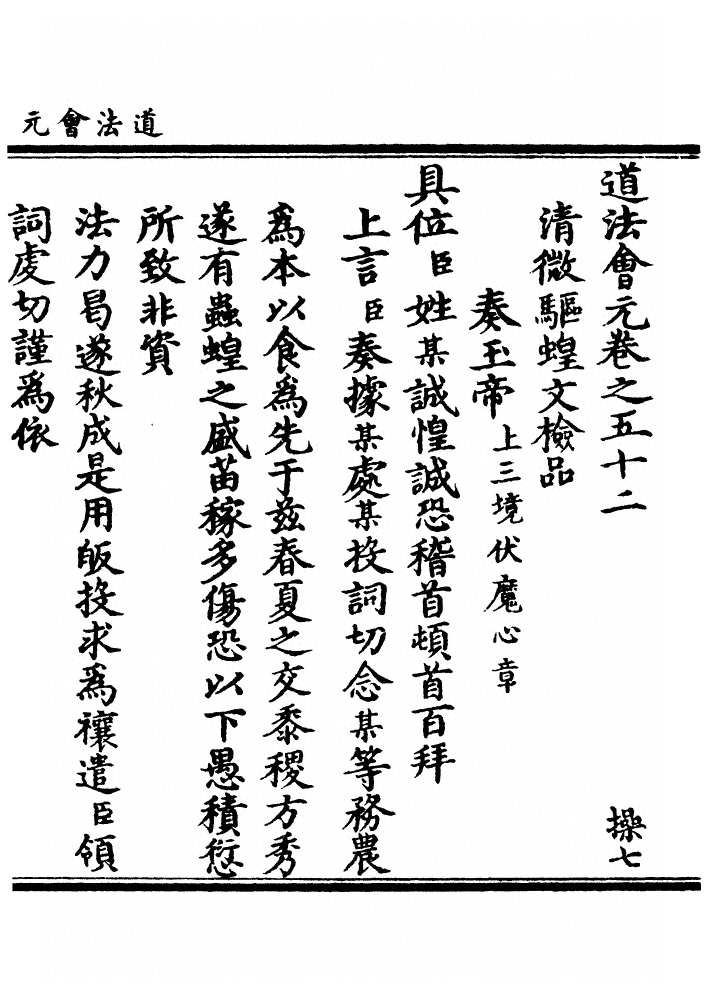 元會法道
道法會元卷之五十二 操七
清微驅蝗文檢品
奏玉帝 上三境伏魔心章
具位臣姓某誠惶誠恐稽首頓首百拜
上言臣奏據某處某投詞切念某等務農
為本以食為先于茲春夏之交黍稷方秀
遂有蟲蝗之盛苗稼多傷恐以下愚積愆
所致非資
法力曷遂秋成是用皈投求為禳遣臣領
詞虔切謹為依